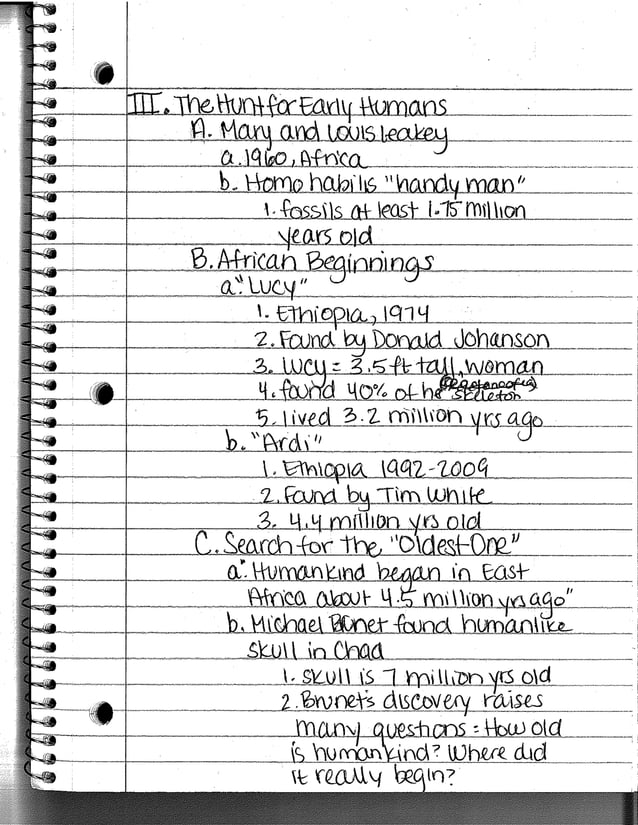 III. The Hunt for Early Humans
A. Mary and Louis Leakey
a. 1960, Africa
b. Homo habilis "handy man"
1. fossils at least 1.75 million
years old
B. African Beginnings
a. "Lucy"
1. Ethiopia, 1974
2. Found by Donald Johanson
3. Lucy = 3.5 ft tall, woman
4. found 40% of he skeleton
5. lived 3.2 million yrs ago
b. "Ardi"
1. Ethiopia 1992-2009
2. Found by Tim White
3. 4.4 million yrs old
C. Search for the "Oldest One"
a. "Humankind began in East
Africa about 4.5 million yrs ago"
b. Michael Brunet found humanlike
skull in Chad
1. skull is 7 million yrs old
2. Brunet's discovery raises
many questions = How old
is humankind? Where did
it really begin?